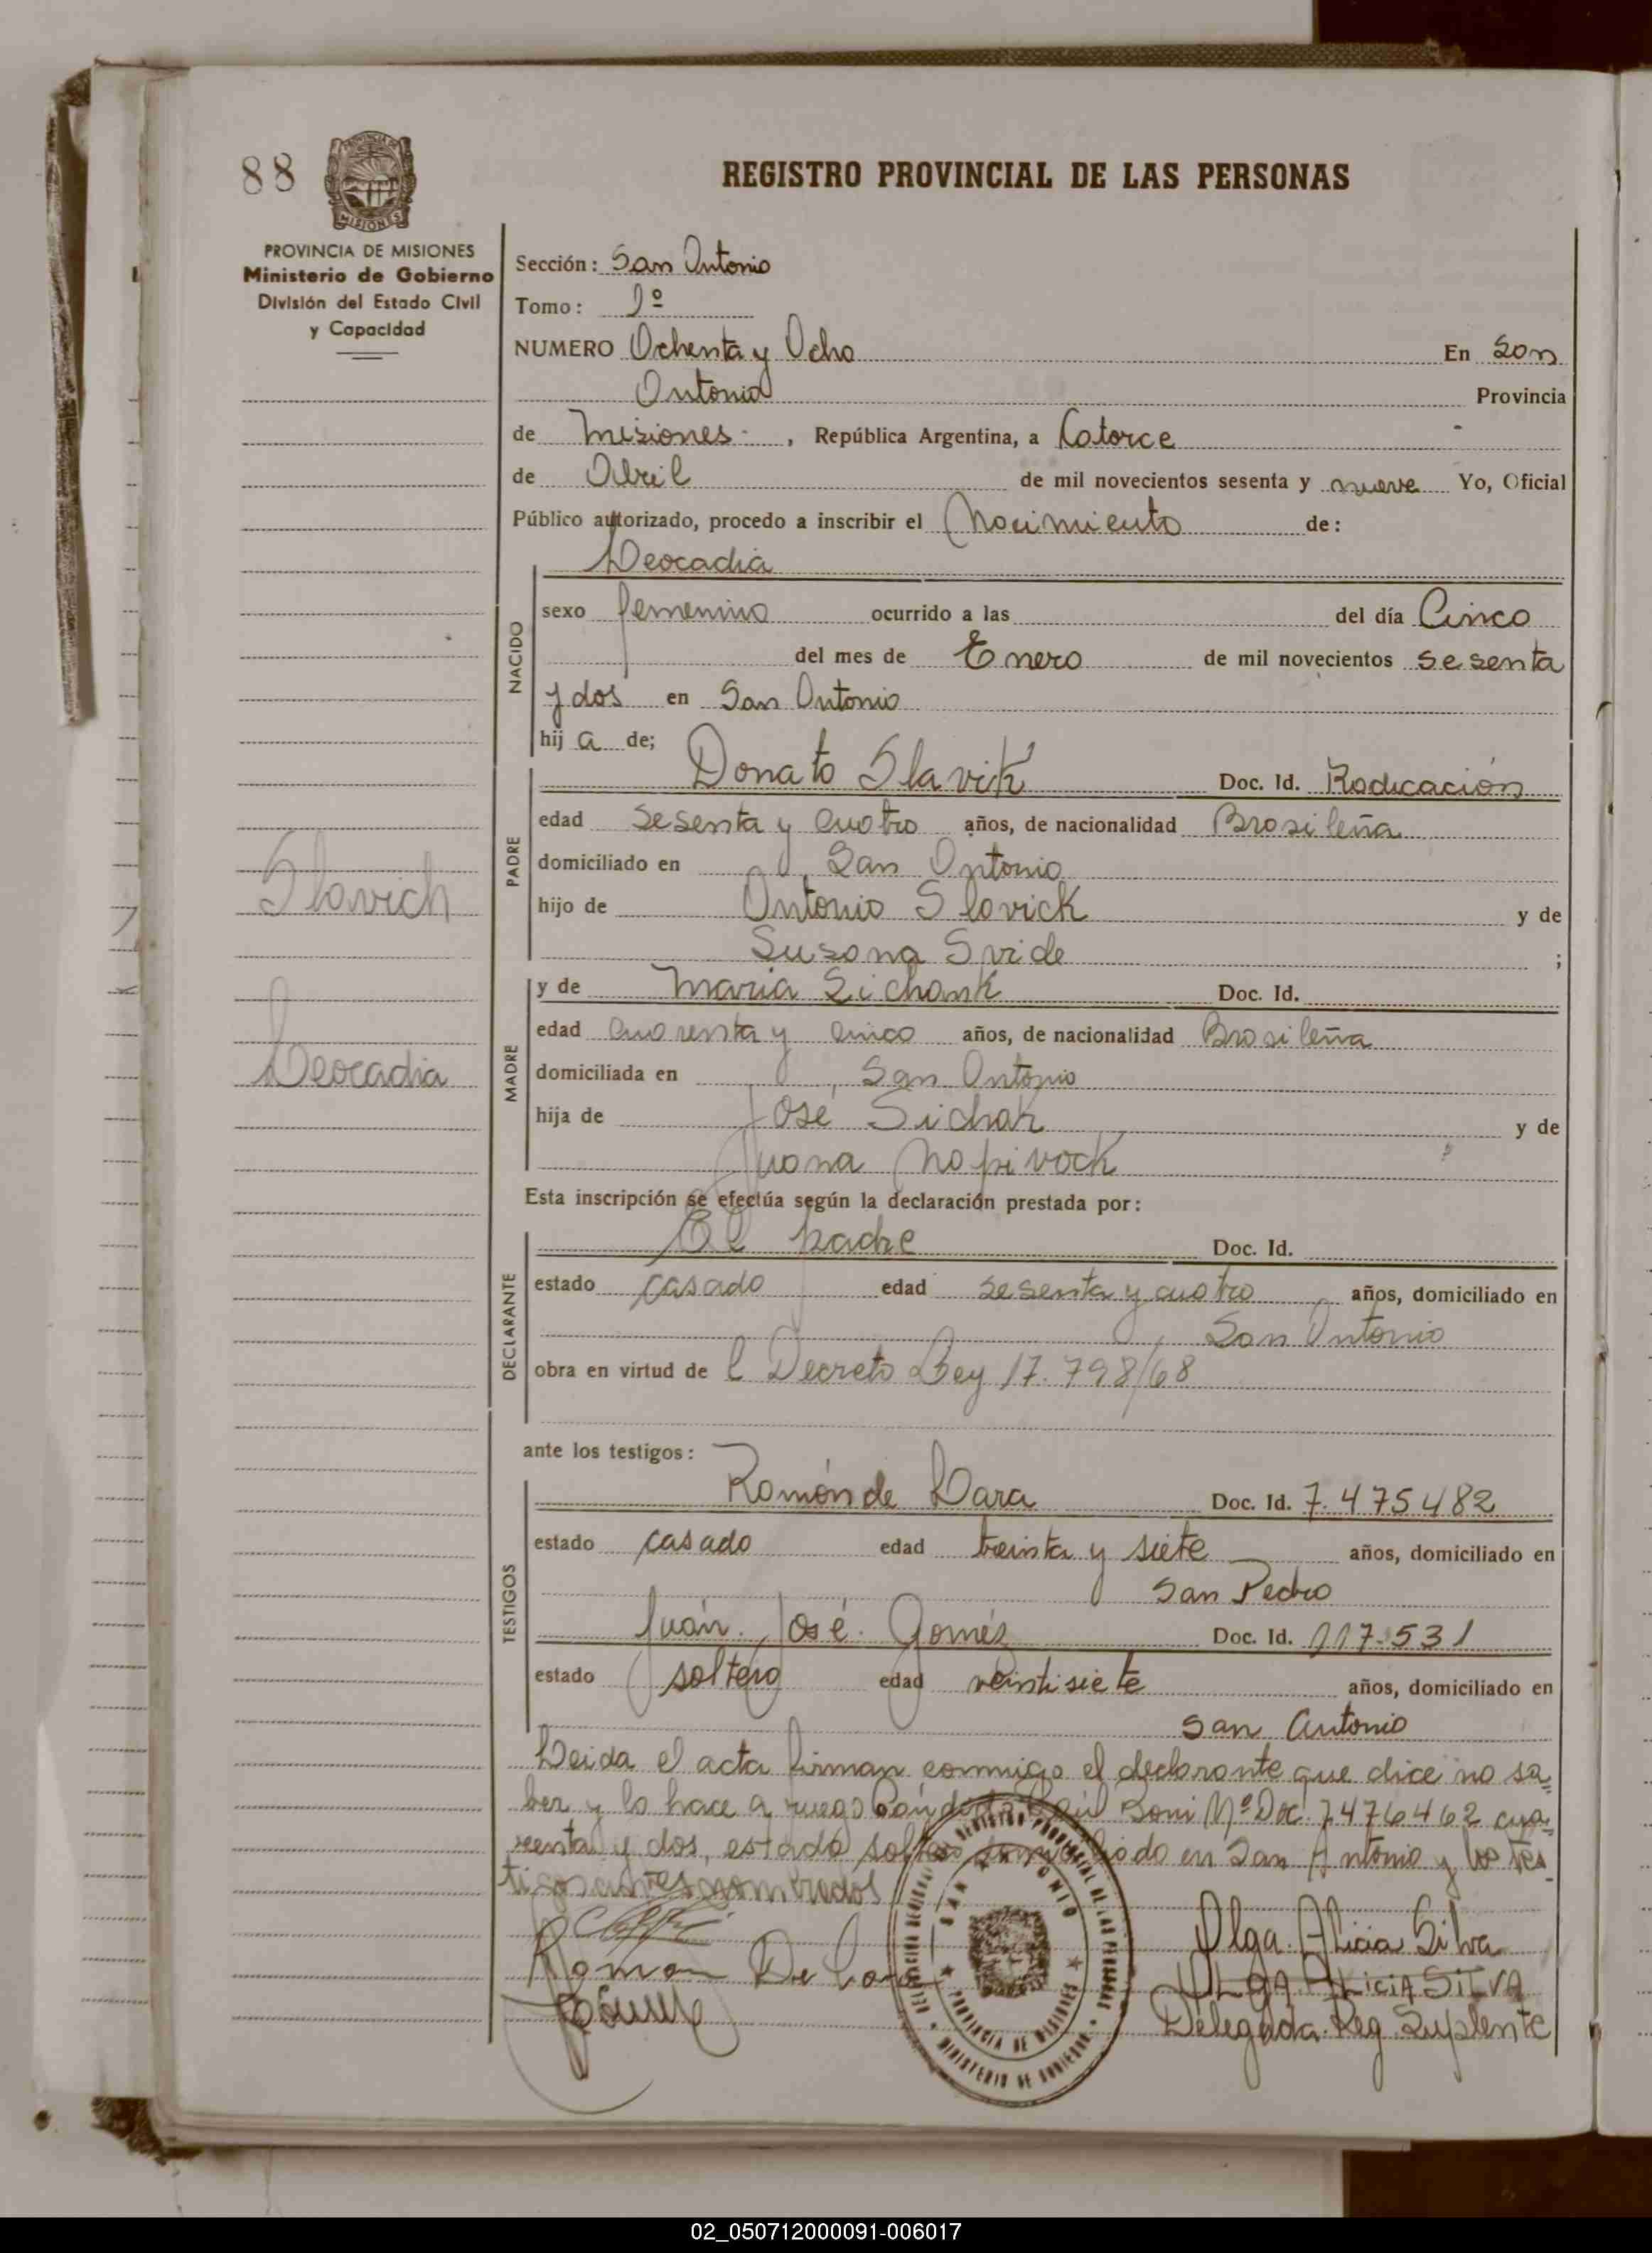 88
REGISTRO PROVINCIAL DE LAS PERSONAS
MISIONES
PROVINCIA DE MISIONES
Ministerio de Gobierno
División del Estado Civil
y Capacidad
Sección: San Antonio
Tomo: 1º
NUMERO Ochenta y Ocho En San
Antonio Provincia
de Misiones - , República Argentina, a Catorce
de Abril de mil novecientos sesenta y nueve Yo, Oficial
Público autorizado, procedo a inscribir el Nacimiento de:
Leocadia
NACIDO
sexo femenino ocurrido a las del día Cinco
del mes de Enero de mil novecientos sesenta
y dos en San Antonio
hij a de;
PADRE
Donato Slavik Doc. Id. Radicación
edad sesenta y cuatro años, de nacionalidad Brasileña
domiciliado en San Antonio
Slavich
hijo de Antonio Slavick y de
Susana Svide ;
MADRE
y de Maria Sichank Doc. Id.
edad cuarenta y cinco años, de nacionalidad Brasileña
Leocadia
domiciliada en San Antonio
hija de José Sichak y de
Juana Napivock
Esta inscripción se efectúa según la declaración prestada por:
DECLARANTE
El padre Doc. Id.
estado casado edad sesenta y cuatro años, domiciliado en
San Antonio
obra en virtud de l Decreto Ley 17.798/68
ante los testigos:
TESTIGOS
Ramón de Lara Doc. Id. 7.475482
estado casado edad treinta y siete años, domiciliado en
San Pedro
Juán. José. Goméz Doc. Id. 117.531
estado soltero edad veintisiete años, domiciliado en
San Antonio
Leida el acta firman conmigo el declarante que dice no sa=
ber y lo hace a ruego Raúl Boni Nº Doc. 7476462 cua=
renta y dos, estado soltero domiciliado en San Antonio y los tes
tigos antes nombrados
Ramon De Lara
Olga Alicia Silva
OLGA ALICIA SILVA
Delegada Reg. Suplente
REGISTRO PROVINCIAL DE LAS PERSONAS
SAN ANTONIO
PROVINCIA DE MISIONES
MINISTERIO DE GOBIERNO
02_050712000091-006017